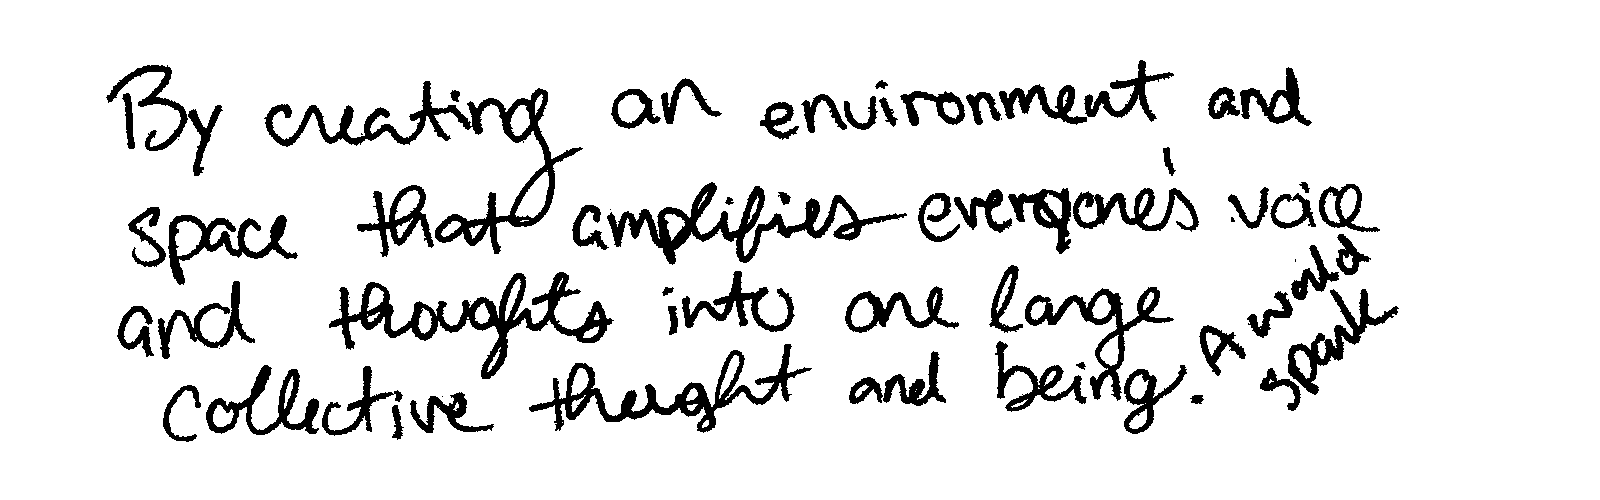 By creating an environment and
space that amplifies everyone's voice
and thoughts into one large
collective thought and being.
A world
spark